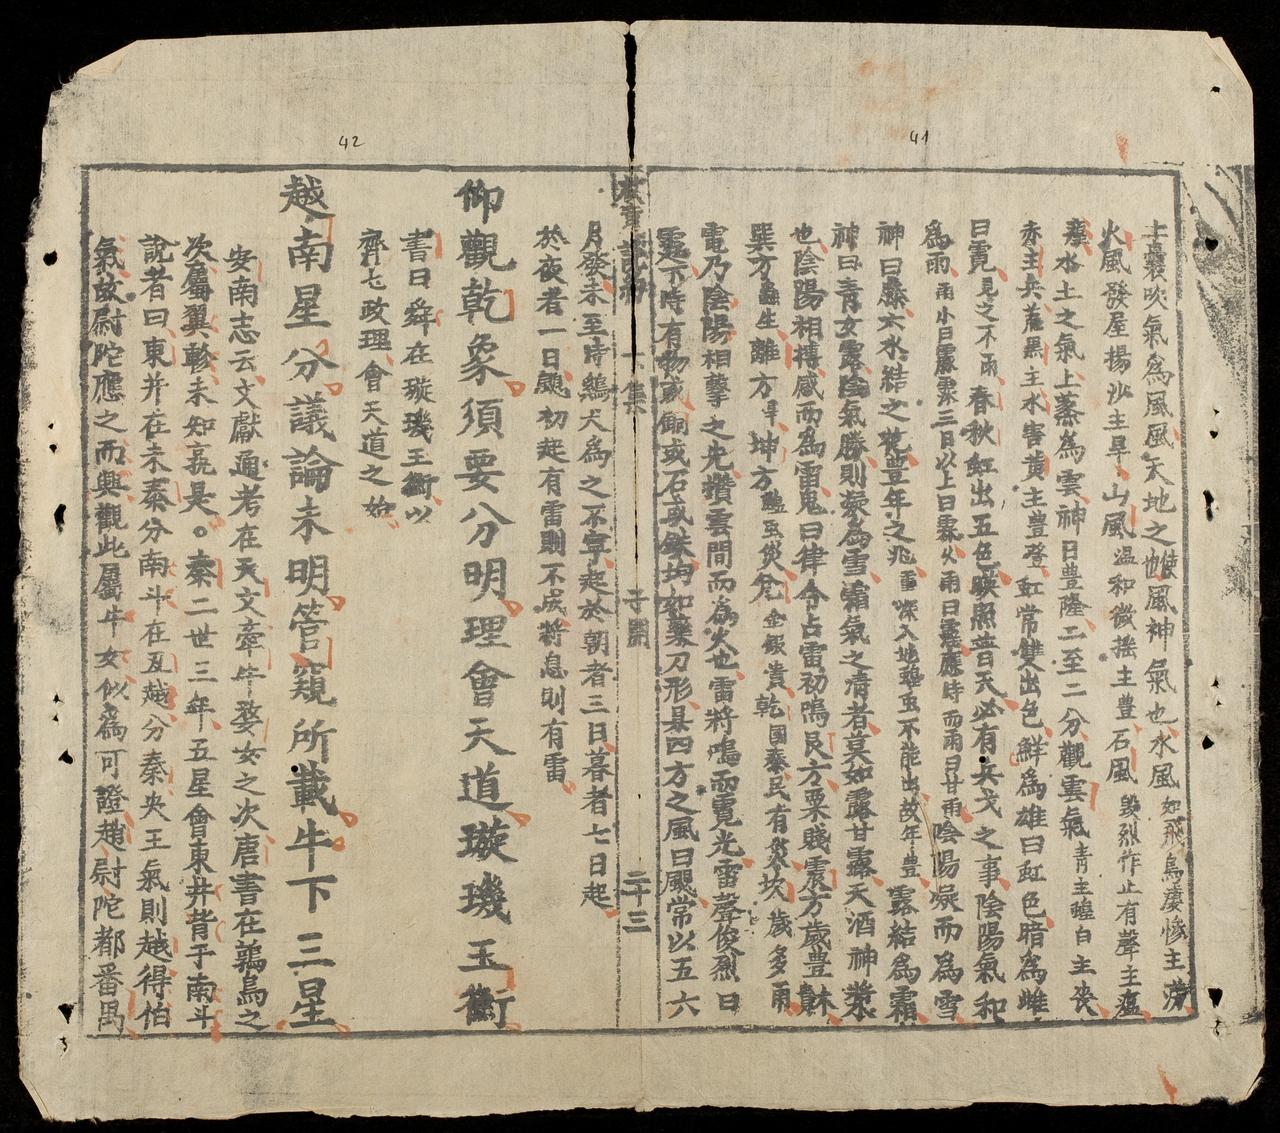 41
土囊吹氣為風風天地之使風神氣也水風如飛鳥淒慘主澇
火風發屋揚沙主旱山風溫和微搖主豊石風毀烈作止有聲主瘟
瘴水土之氣上蒸為雲神曰豊隆二至二分觀雲氣青主蝗白主喪
赤主兵荒黒主水害黄主豊登虹常雙出色鮮為雄曰虹色暗為雌
曰霓見之不雨春秋虹出五色映照昔日天必有兵戈之事陰陽氣和
為雨雨小曰霡霂三日以上曰霖火雨曰霪應時而雨曰甘雨陰陽凝而為雪
神曰滕六水結之花豊年之兆雪深入地蝗虫不能出故年豊露結為霜
神曰青女露陰氣勝則凝為雪霜氣之清者莫如露甘露天酒神漿
也陰陽相搏感而為雷鬼曰律令占雷初鳴艮方粟賤震方歲豊
巽方蟲生離方旱坤方蝗虫災兌金銀貴乾國泰民有災坎歲多雨
電乃陰陽相擊之光攢雲間而為火也雷將鳴而霓光雷聲俊烈曰
霆下時有物或銅或石或鉄均如藥刀形具四方之風曰颶常以五六
集 二十三
42
月發未至時鷄犬為之不寧起於朝者三日暮者七日起
於夜者一日颶初起有雷則不成將息則有雷
仰觀乾象須要分明理會天道璇璣玉衡
書曰舜在璇璣玉衡以
齊七政理會天道之始
越南星分議論未明管窺所載牛下三星
安南志云文獻通考在天文牽牛婺女之次唐書在鶉鳥之
次屬翼軫未知孰是。秦二世三年五星會東井昔于南斗
說者曰東井在未秦分南斗在丑越分秦失王氣則越得伯
氣故尉陀應之而興觀此屬牛女似為可證趙尉陀都番禺